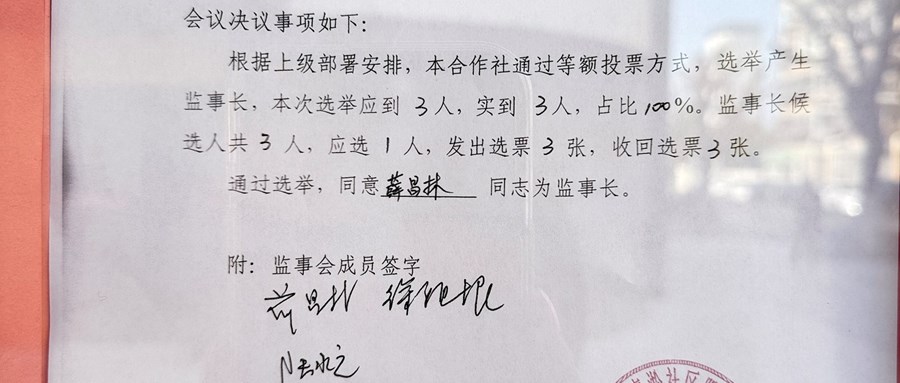 会议决议事项如下：
根据上级部署安排，本合作社通过等额投票方式，选举产生
监事长，本次选举应到 3人，实到 3人，占比100%。监事长候
选人共 3 人，应选 1 人，发出选票 3 张，收回选票3 张。
通过选举，同意薛昌林 同志为监事长。
附：监事会成员签字
薛昌林 徐
社区